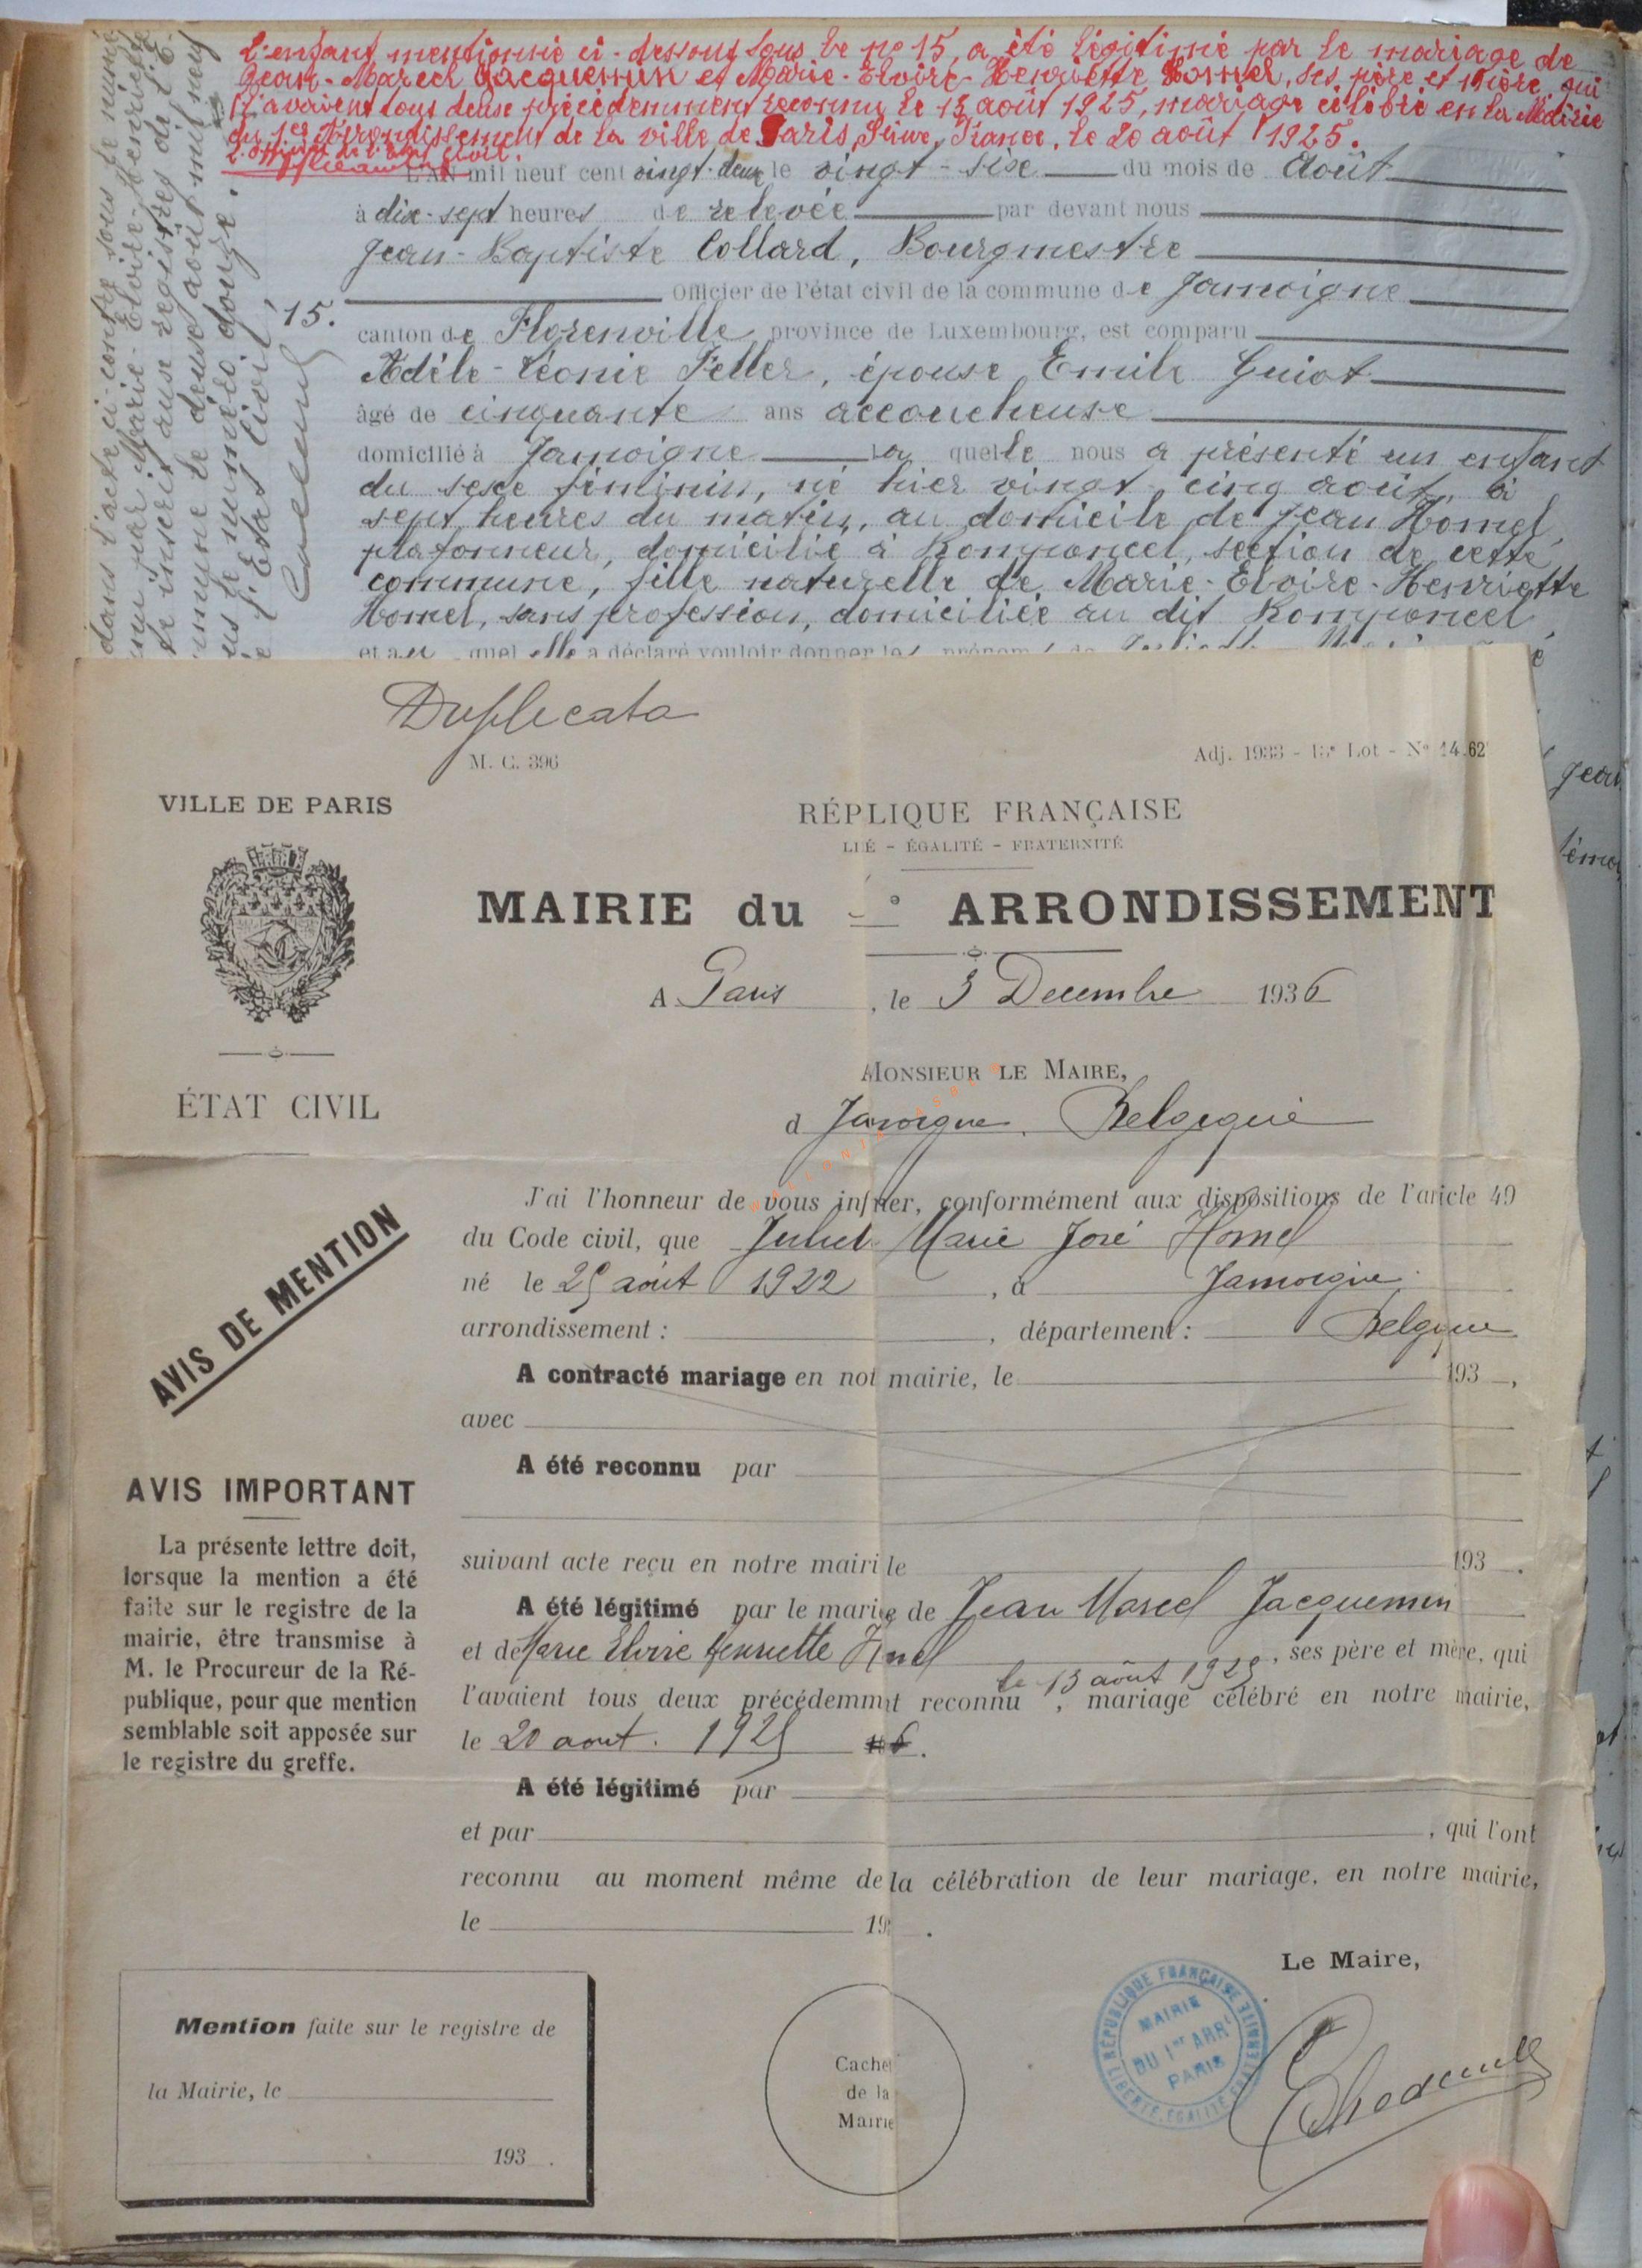 L'enfant mentionné ci-dessous sous le no 15, a été légitimé par le mariage de
Jean-Marcel Jacquemin et Marie-Elvire-Henriette Homel, ses père et mère, qui
l'avaient tous deux précédemment reconnu le 13 août 1925, mariage célébré en la Mairie
du 1er Arrondissement de la ville de Paris, Seine, France, le 20 août 1925.
L'officier de l'Etat Civil.
L'AN mil neuf cent vingt-deux le vingt-six du mois de Août
à dix-sept heures de relevée par devant nous
Jean-Baptiste Collard, Bourgmestre
Officier de l'état civil de la commune de Jamoigne
15.
canton de Florenville province de Luxembourg, est comparu
Adèle-Léonie Feller, épouse Emile Guiot
âgé de cinquante ans accoucheuse
domicilié à Jamoigne la quelle nous a présenté un enfant
du sexe féminin, né hier vingt-cinq août, à
sept heures du matin, au domicile de Jean Homel,
plafonneur, domicilié à Romponcel, section de cette
commune, fille naturelle de Marie-Elvoire-Henriette
Homel, sans profession, domiciliée au dit Romponcel
et au quel elle a déclaré vouloir donner les prénoms de
dans l'acte ci-contre sous le numé
nu par Marie-Elvoire-Henriette
te inscrit aux registres de l'E-
mmune le douze août mil neuf
us le numéro douze.
e l'Etat civil,
Duplicata
M. C. 396
Adj. 1933 - 15e Lot - No 14.62
VILLE DE PARIS
RÉPLIQUE FRANÇAISE
LIÉ - ÉGALITÉ - FRATERNITÉ
MAIRIE du e ARRONDISSEMENT
A Paris, le 3 Decembre 1936
ÉTAT CIVIL
MONSIEUR LE MAIRE,
d Jamoigne. Belgique
AVIS DE MENTION
J'ai l'honneur de vous infmer, conformément aux dispositions de l'aricle 49
du Code civil, que Juliet Marie José Homel
né le 25 août 1922, à Jamoigne
arrondissement : , département : Belgique
A contracté mariage en not mairie, le 193 ,
avec
A été reconnu par
suivant acte reçu en notre mairi le 193 .
A été légitimé par le marie de Jean Marcel Jacquemin
et de Marie Elvire Henriette Homel, ses père et mère, qui
le 13 août 1925
l'avaient tous deux précédemmt reconnu , mariage célébré en notre mairie,
le 20 aout. 1925
A été légitimé par
et par , qui l'ont
reconnu au moment même de la célébration de leur mariage, en notre mairie,
le 19 .
AVIS IMPORTANT
La présente lettre doit,
lorsque la mention a été
faite sur le registre de la
mairie, être transmise à
M. le Procureur de la Ré-
publique, pour que mention
semblable soit apposée sur
le registre du greffe.
Le Maire,
Mention faite sur le registre de
la Mairie, le
193 .
Cachet
de la
Mairie
RÉPUBLIQUE FRANÇAISE
LIBERTÉ, ÉGALITÉ, FRATERNITÉ
MAIRIE
DU 1er ARRt
PARIS